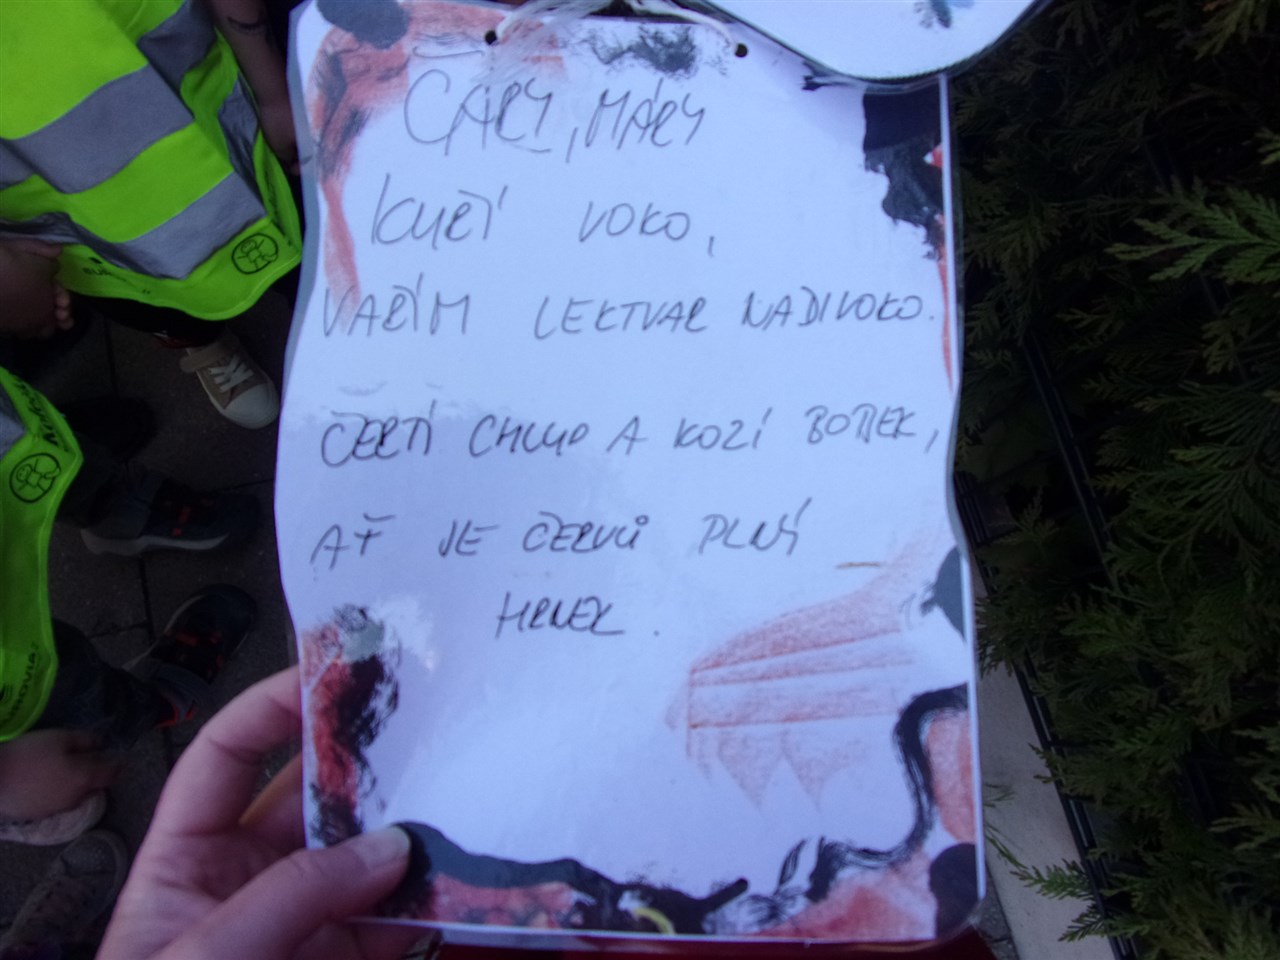 ČÁRY, MÁRY
KUŘÍ VOKO,
VAŘÍM LEKTVAR NADIVOKO.
ČERTÍ CHLUP A KOZÍ BOBEK,
AŤ JE ČERVŮ PLNÝ
HRNEK.